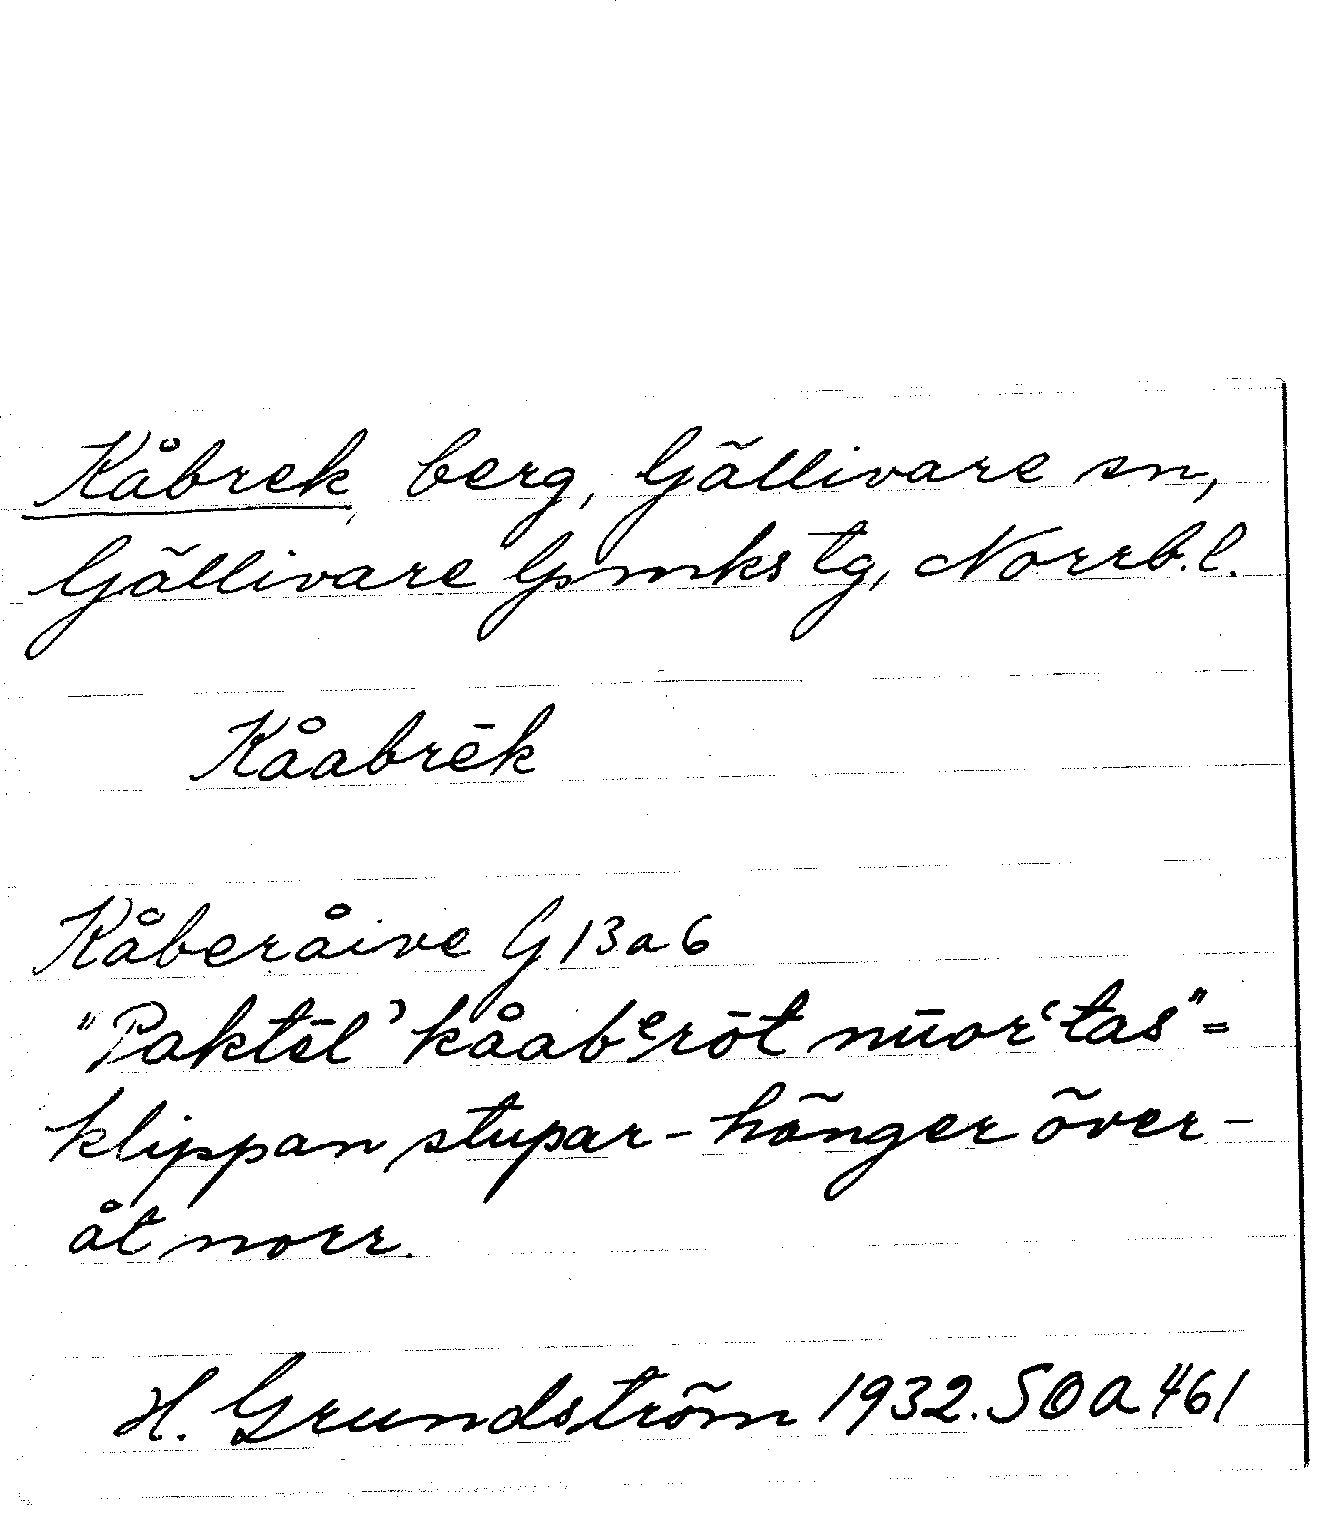 Kåbrek, berg, Gällivare sn,
Gällivare Gsmks tg, Norrb.l.
Kåabrēk
Kåberåive G 13 a 6
"Paktēl' kåabᵉrōt nūor‘tas" =
klippan stupar - hänger över -
åt norr.
H. Grundström 1932. SOA 461